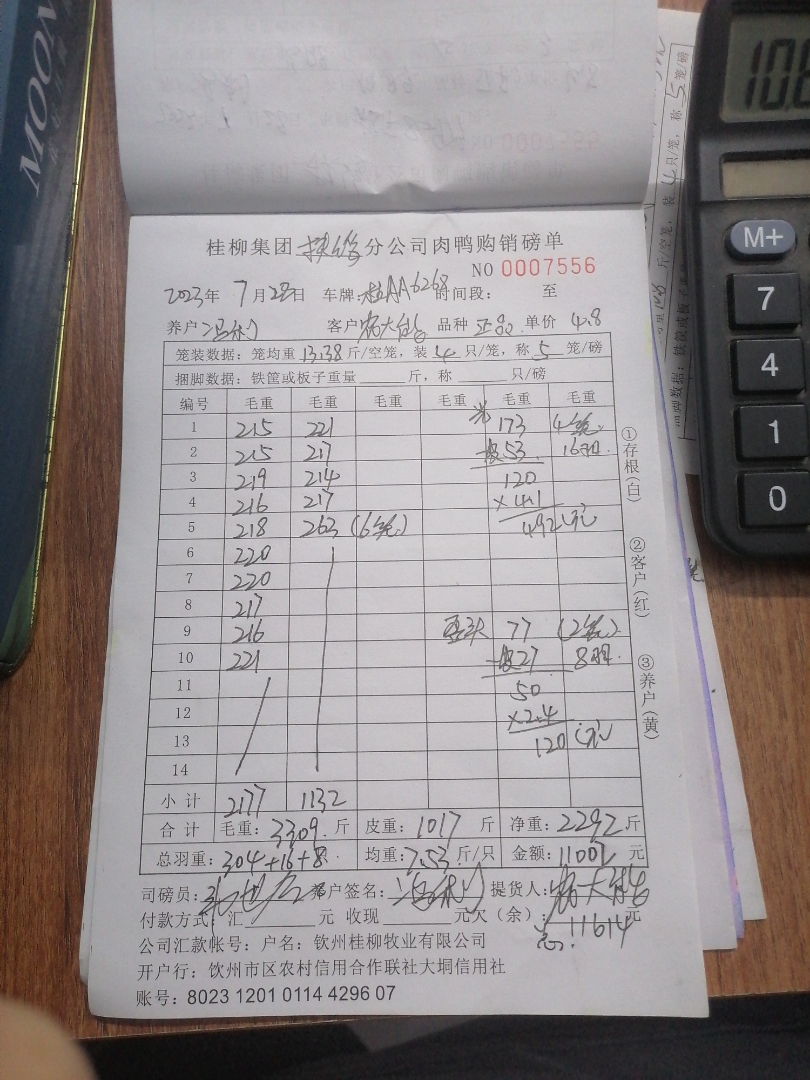 MOON
10.
M+
7
4
1
0
桂柳集团 扶绥 分公司肉鸭购销磅单
NO 0007556
2023年 7月28日 车牌:桂AA6268 时间段: 至
养户 客户 品种 正品 单价 4.8
笼装数据：笼均重 13.38 斤/空笼，装 4 只/笼，称 5 笼/磅
捆脚数据：铁筐或板子重量 斤，称 只/磅
编号 毛重 毛重 毛重 毛重 毛重 毛重
1 215 221 173 4笼
2 215 217 -皮53 16羽
3 219 214 120
4 216 217 ×4.1
5 218 263 (6笼) 492(元)
6 220
7 220
8 217
9 216 77 (2笼)
10 221 -皮27 8羽
11 50
12 ×2.4
13 120(元)
14
小计 2177 1132
合计 毛重：3309 斤 皮重：1017 斤 净重：2292 斤
总羽重：304+16+8 均重：7.53 斤/只 金额：11002 元
司磅员： 养户签名： 提货人：
付款方式：汇 元 收现 元欠（余）： 11614 元
公司汇款帐号：户名：钦州桂柳牧业有限公司
开户行：饮州市区农村信用合作联社大垌信用社
账号：8023 1201 0114 4296 07
①存根(白)
②客户(红)
③养户(黄)
斤/空笼，装 4 只/笼，称 5 笼/磅